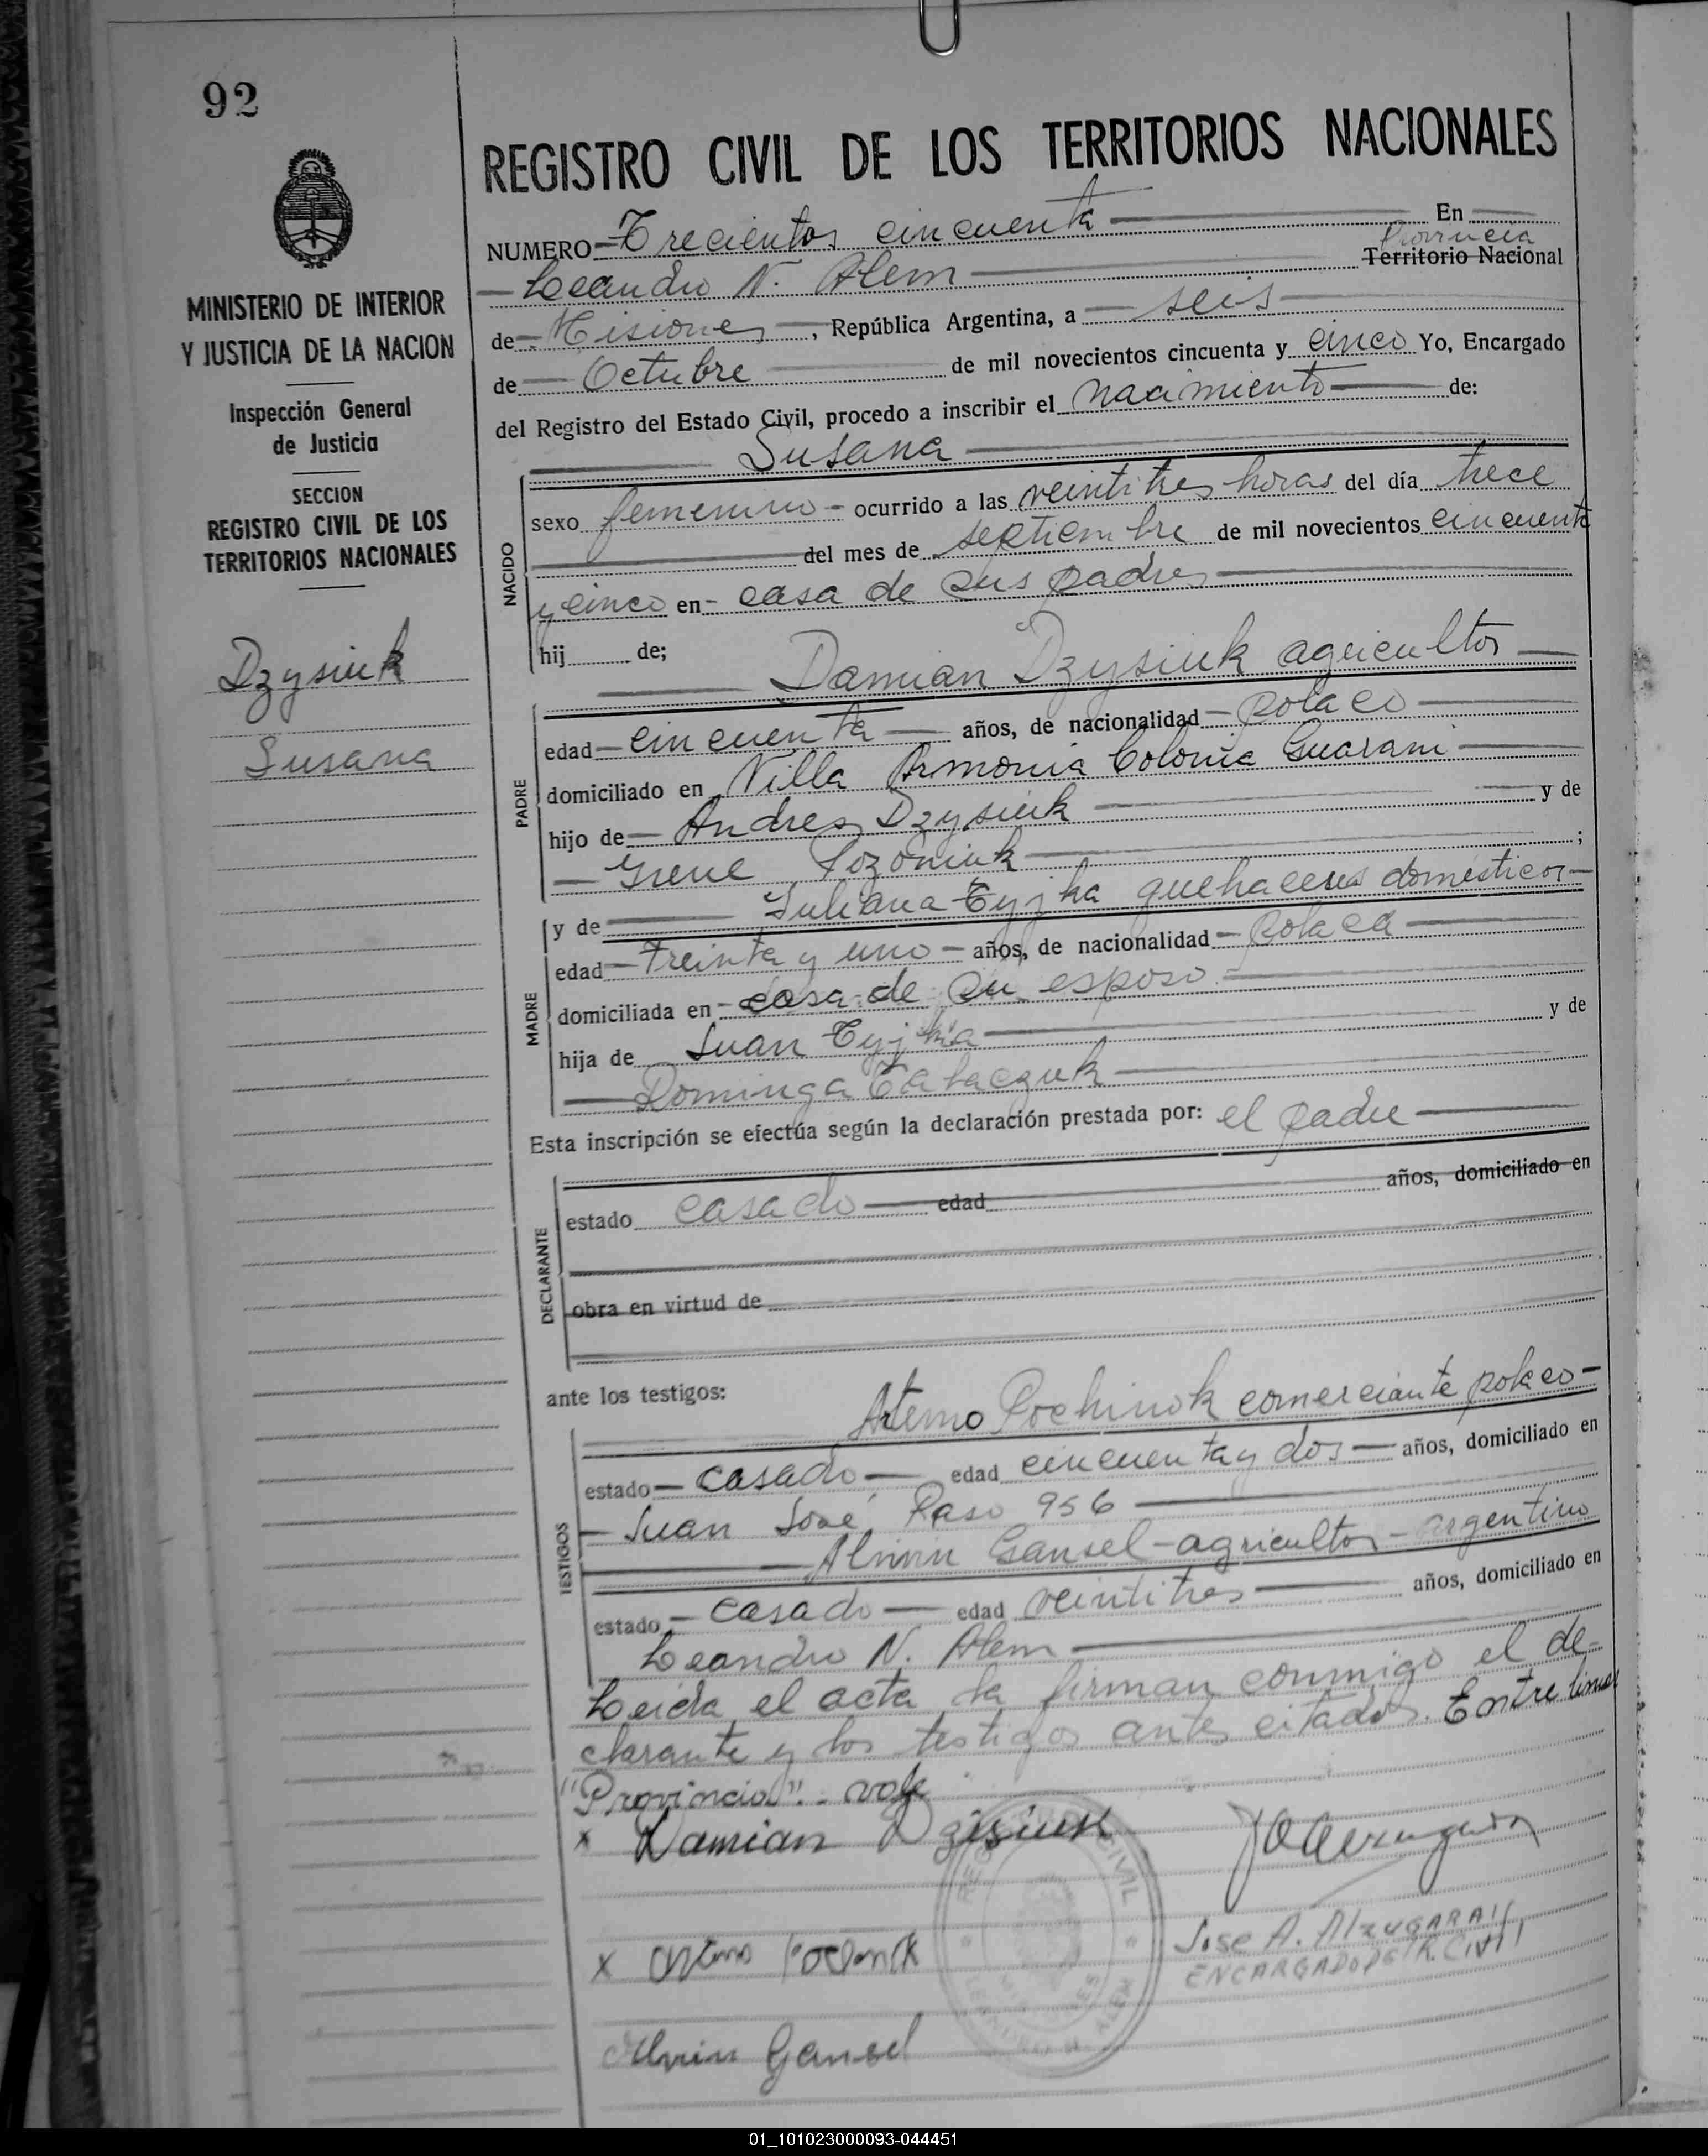 92
MINISTERIO DE INTERIOR
Y JUSTICIA DE LA NACION
Inspección General
de Justicia
SECCION
REGISTRO CIVIL DE LOS
TERRITORIOS NACIONALES
Dzysiuk
Susana
REGISTRO CIVIL DE LOS TERRITORIOS NACIONALES
NUMERO Trecientos cincuenta En
Provincia
Leandro N. Alem Territorio Nacional
de Misiones, República Argentina, a seis
de Octubre de mil novecientos cincuenta y cinco Yo, Encargado
del Registro del Estado Civil, procedo a inscribir el nacimiento de:
Susana
NACIDO
sexo femenino - ocurrido a las veintitres horas del día trece
del mes de septiembre de mil novecientos cincuenta
y cinco en - casa de sus padres
hij de;
Damian Dzysiuk agricultor
PADRE
edad cincuenta años, de nacionalidad polaco
domiciliado en Villa Armonia Colonia Guarani
hijo de Andres Dzysiuk y de
Irene Pozoniuk ;
y de Juliana Tyjka quehaceres domésticos
MADRE
edad treinta y uno años, de nacionalidad polaca
domiciliada en casa de su esposo
hija de Juan Tyjka y de
Dominga
Esta inscripción se efectúa según la declaración prestada por: el padre
DECLARANTE
estado casado edad años, domiciliado en
obra en virtud de
ante los testigos:
Artemo Pochinok comerciante polaco
TESTIGOS
estado casado edad cincuenta y dos años, domiciliado en
Juan José Paso 956
Alvin Gansel - agricultor - argentino
estado casado edad veintitres años, domiciliado en
Leandro N. Alem
Leida el acta la firman conmigo el de-
clarante y los testigos antes citados. Entre lineas
"Provincia". - vale
x Damian Dzisiuk
REGISTRO CIVIL
LEANDRO N. ALEM
Jose A. Alzugaray
ENCARGADO DEL R. CIVIL
x Artemo Pochinok
Alvin Gansel
01_101023000093-044451